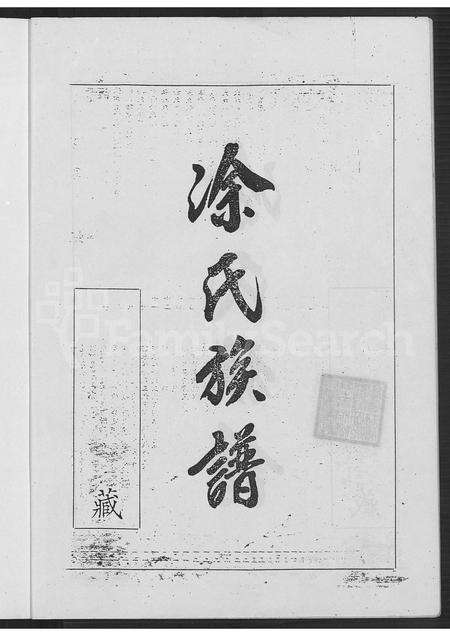 涂氏族譜
藏
FamilySearch